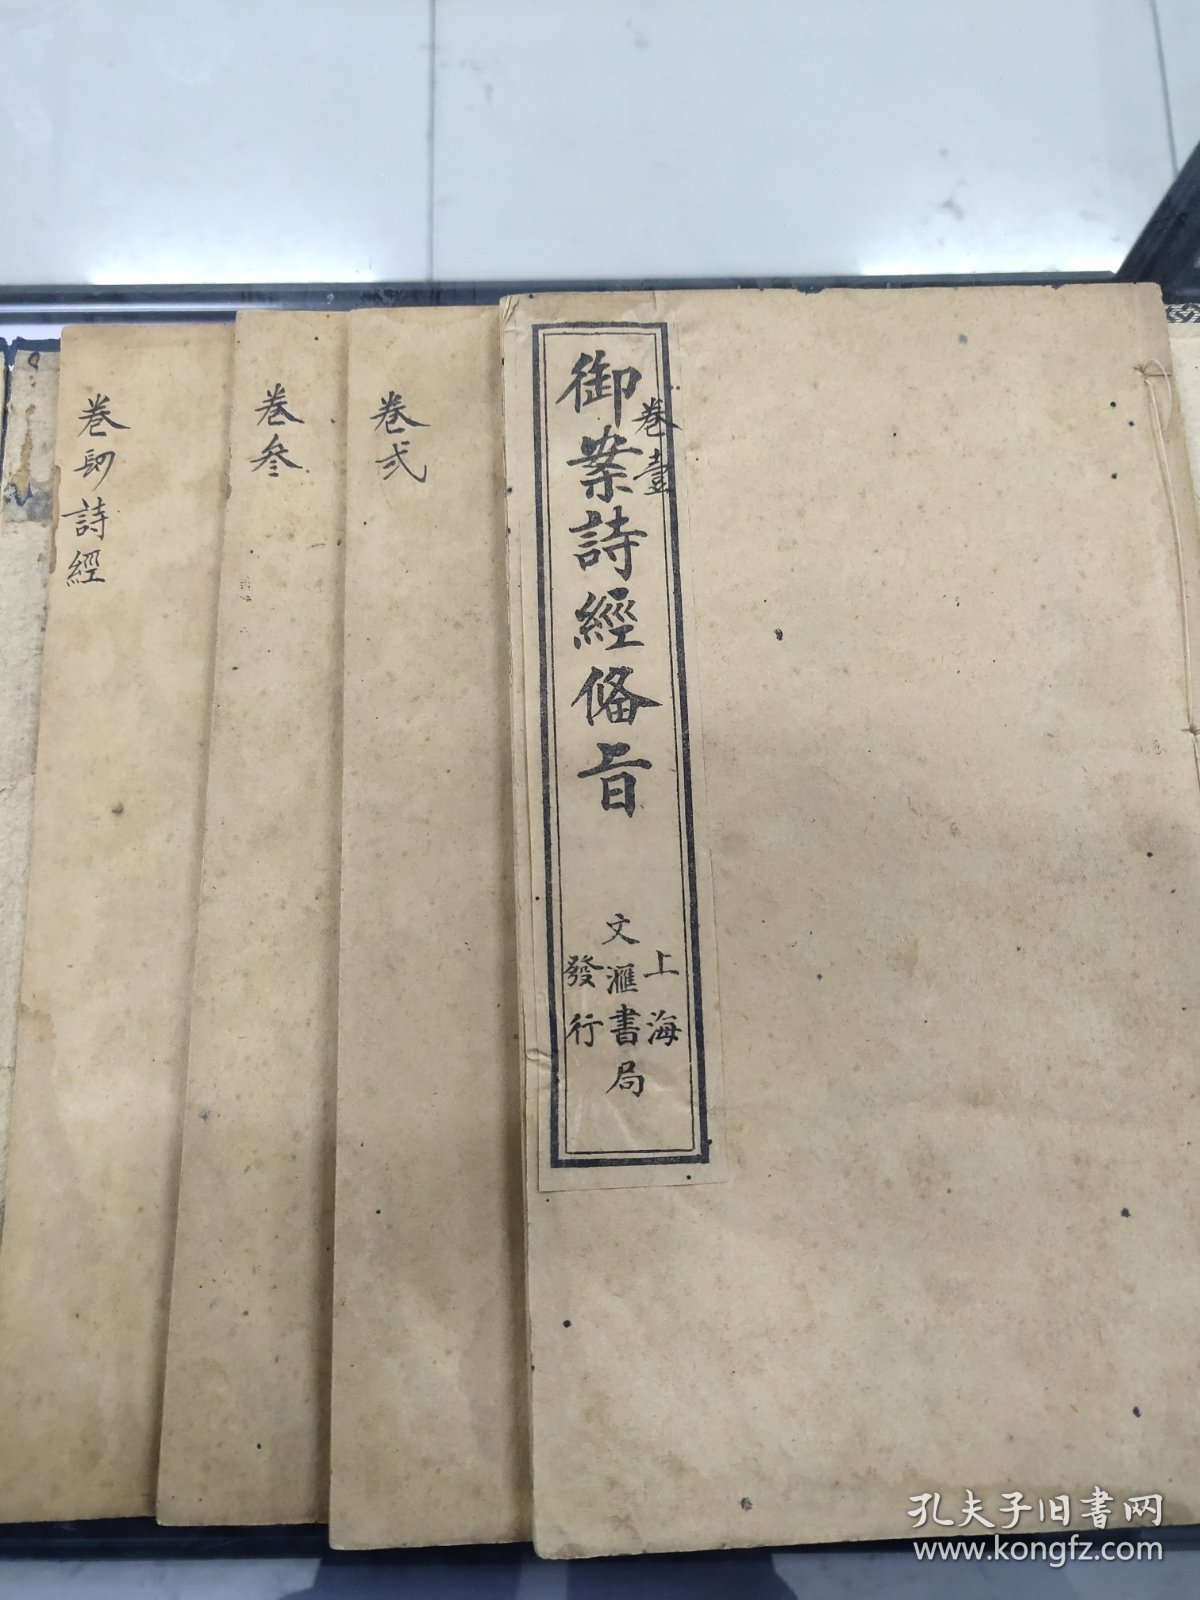 御案詩經俻旨
卷壹
上海
文滙書局
發行
卷弍
卷叄
卷肆詩經
孔夫子旧书网
www.kongfz.com